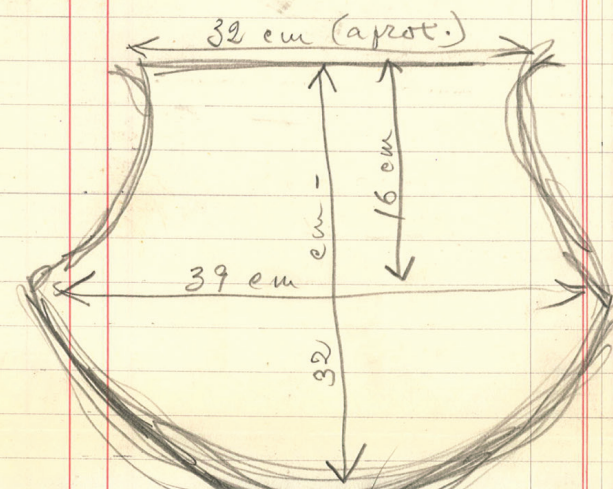 32 cm (aprox.)
16 cm
32 cm -
39 cm